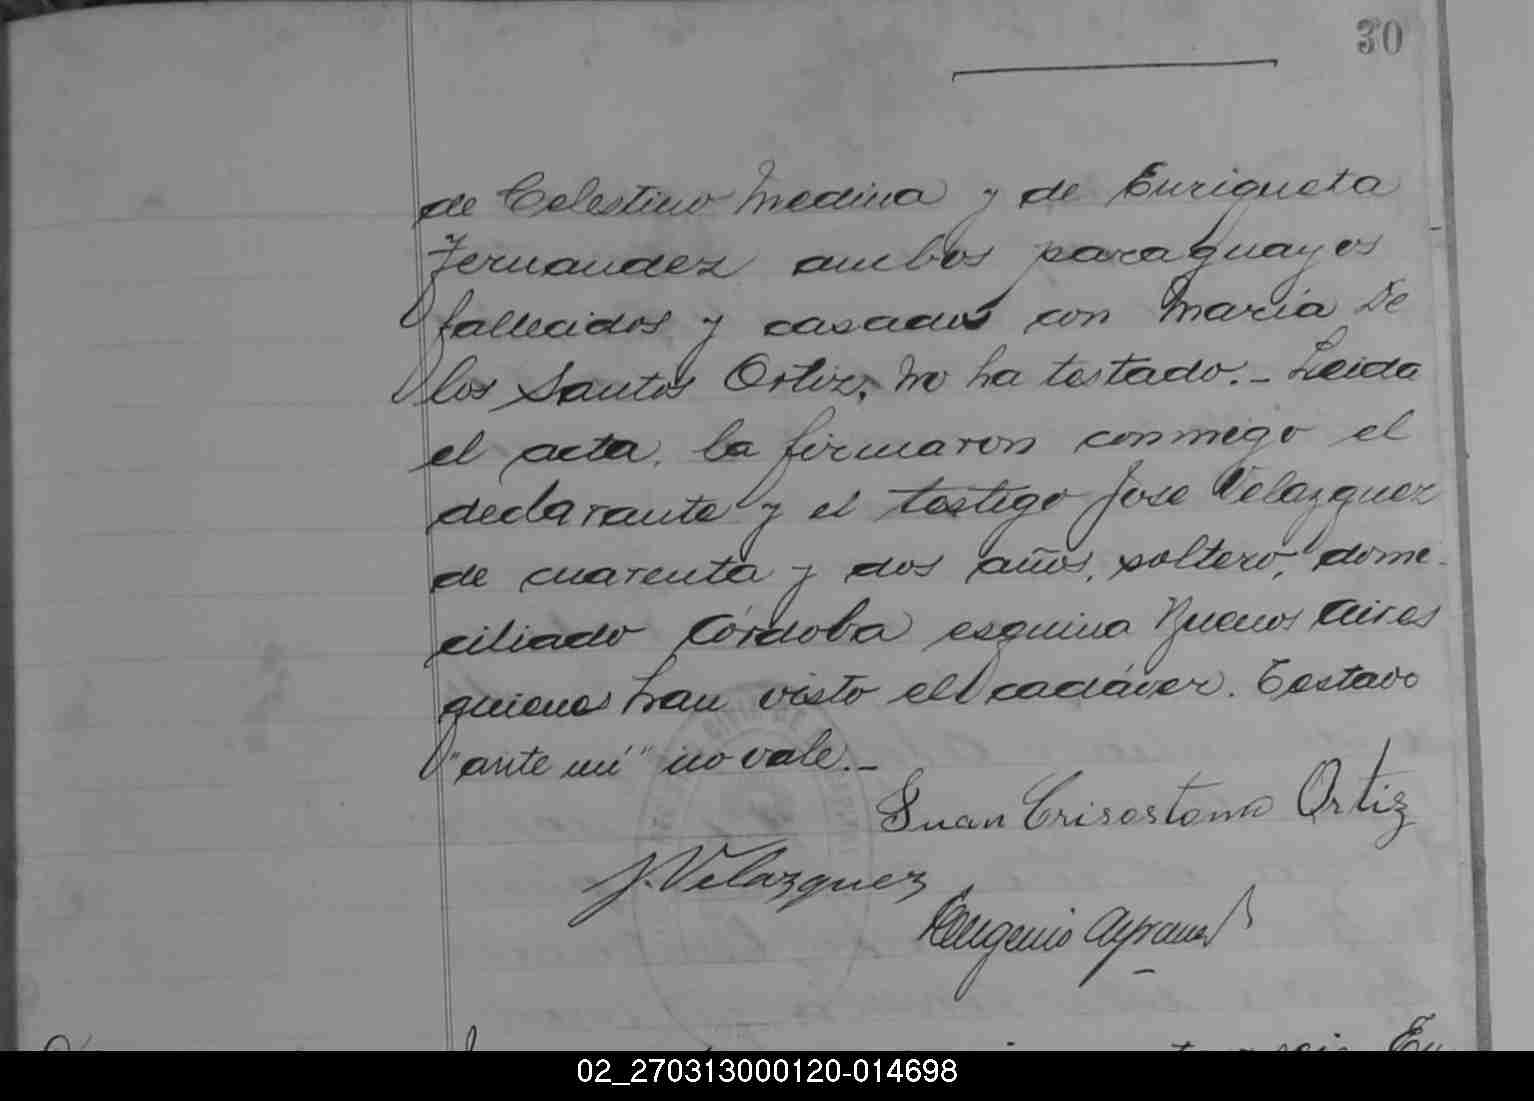 30
de Celestino Medina y de Enriqueta
Fernandez ambos paraguayos
fallecidos y casados con María De
los Santos Ortiz, no ha testado.- Leida
el acta, la firmaron conmigo el
declarante y el testigo José Velazquez
de cuarenta y dos años, soltero, domi-
ciliado Córdoba esquina Buenos Aires
quienes han visto el cadáver. Testado
"ante mí" no vale.-
Juan Crisostomo Ortiz
J. Velazquez
Eugenio
02_270313000120-014698